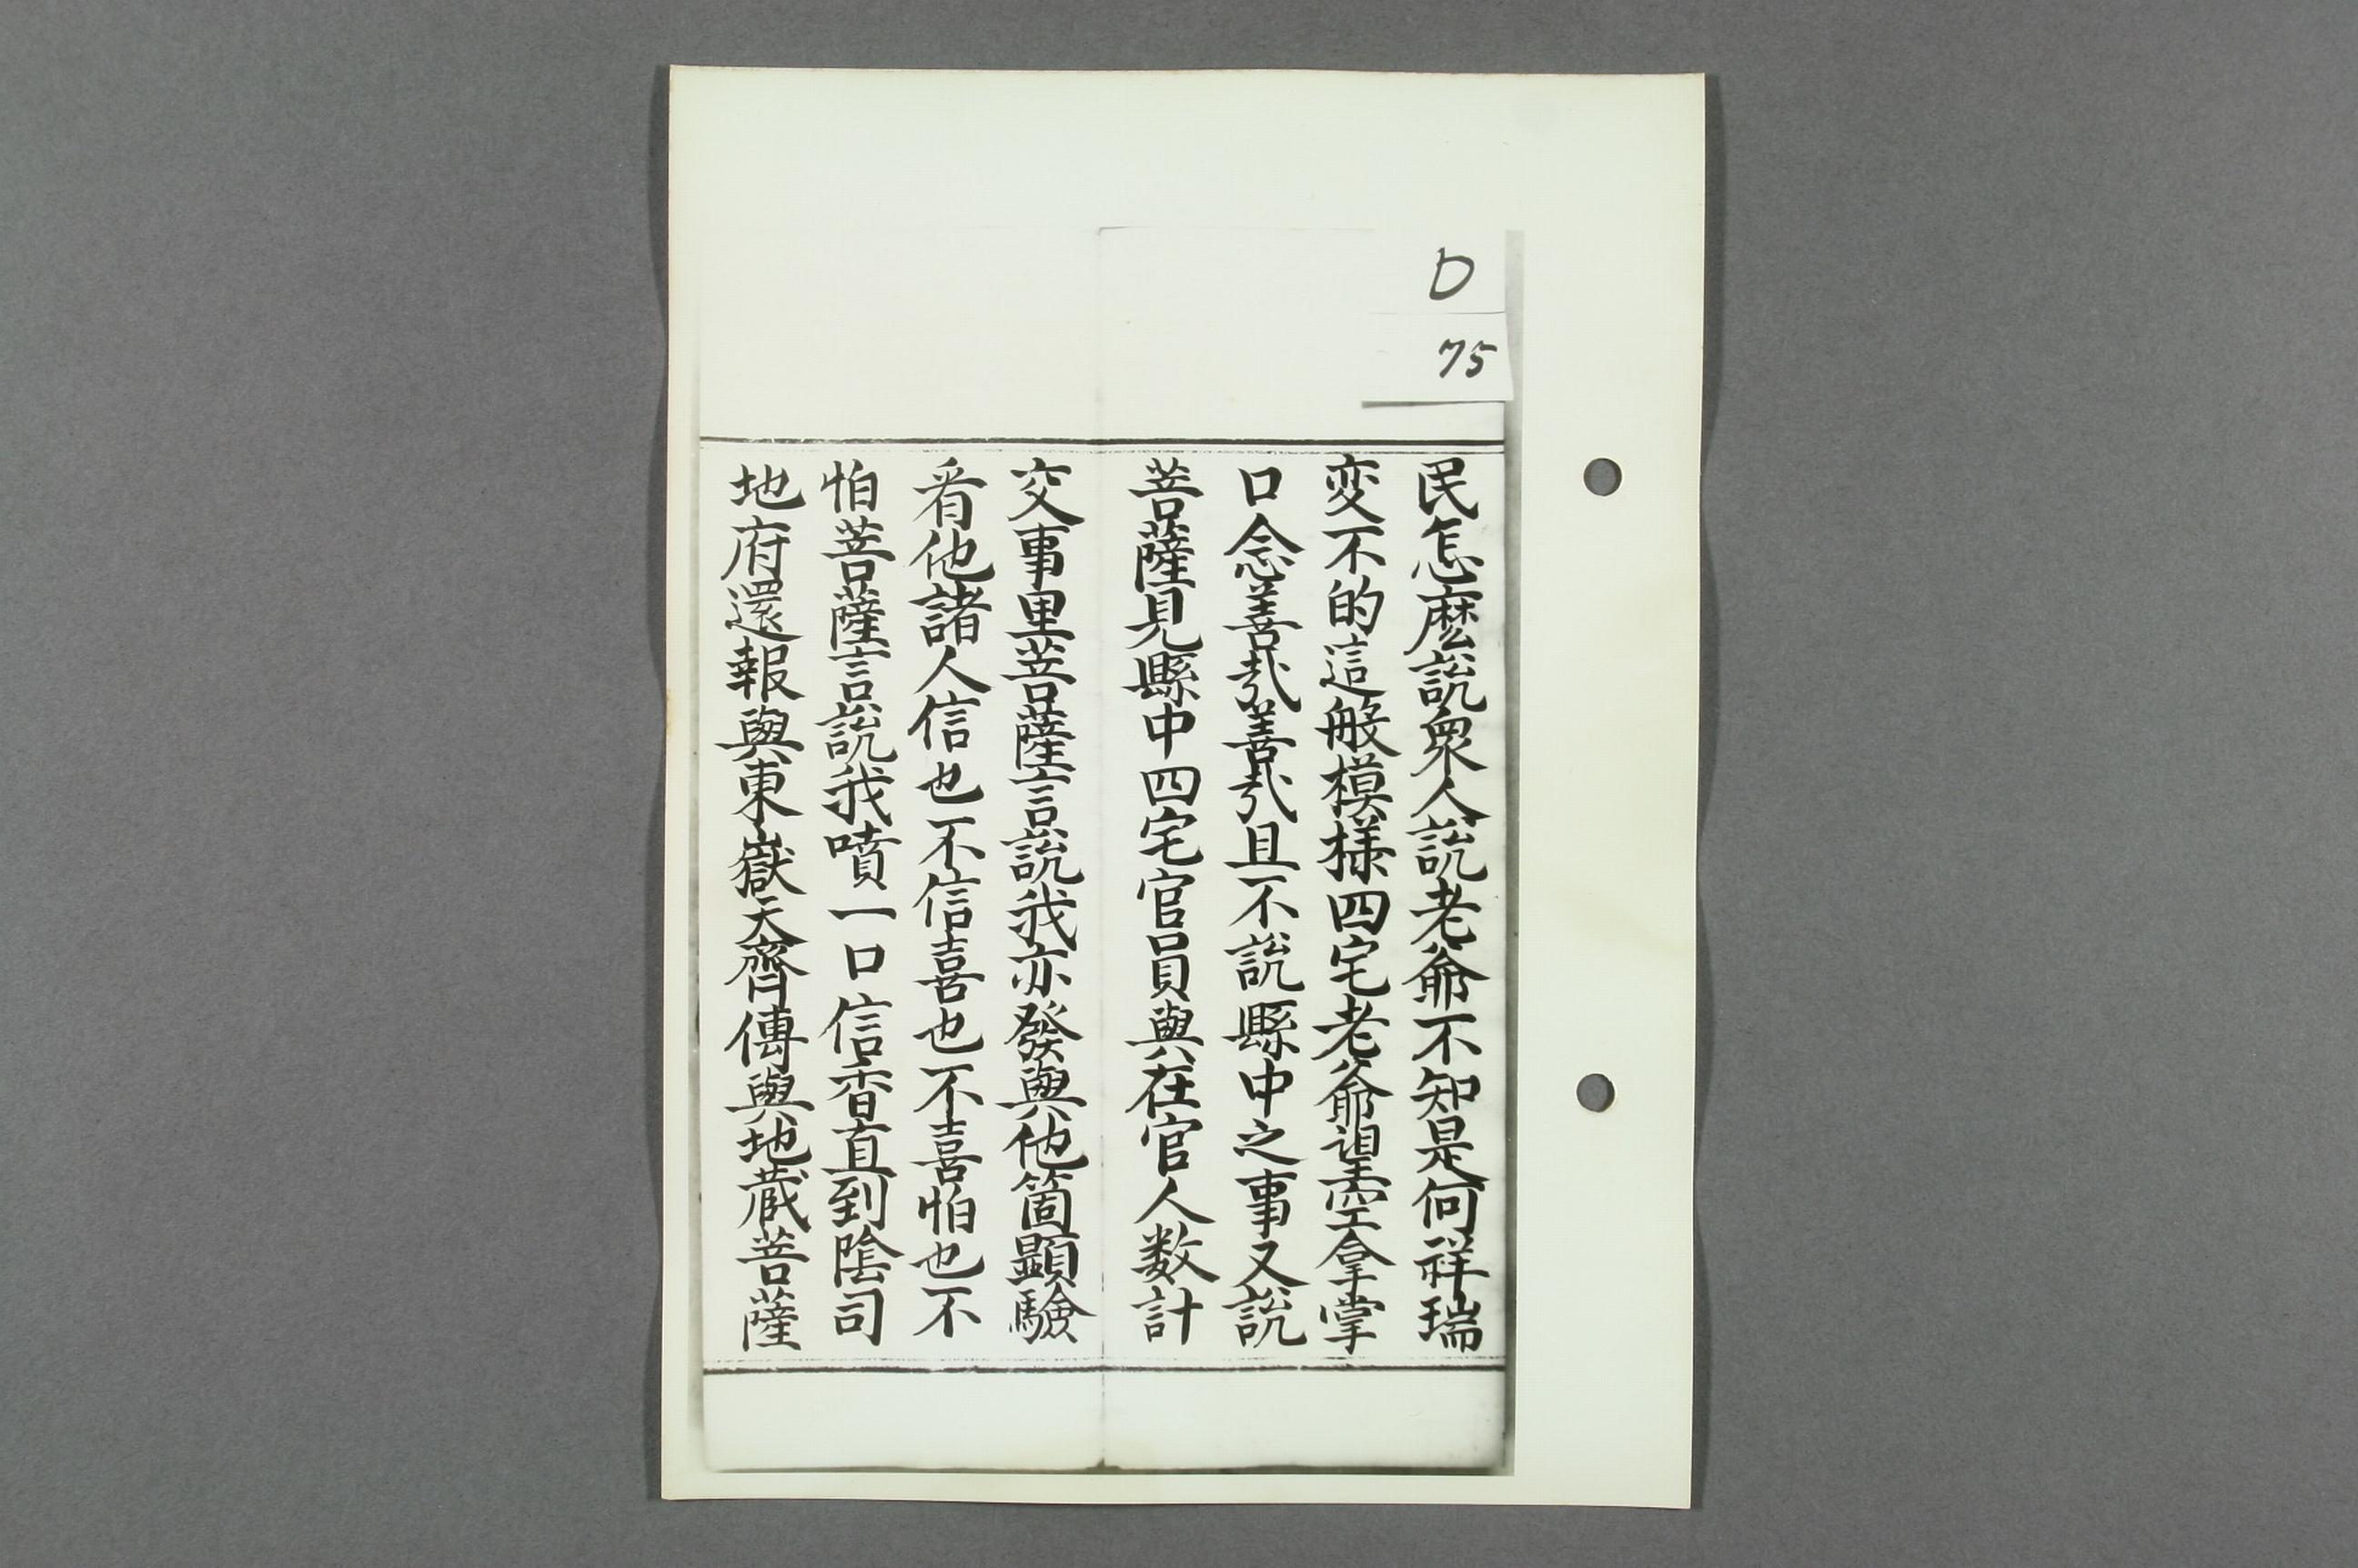 D
75
民怎麽說衆人說老爺不知是何祥瑞
変不的這般模様四宅老爺望空拿掌
口念善哉善哉且不說縣中之事又說
菩薩見縣中四宅官員與在官人数計
交事里菩薩言說我亦發與他箇顯驗
看他諸人信也不信喜也不喜怕也不
怕菩薩言說我噴一口信香直到陰司
地府還報與東嶽天齊傳與地蔵菩薩